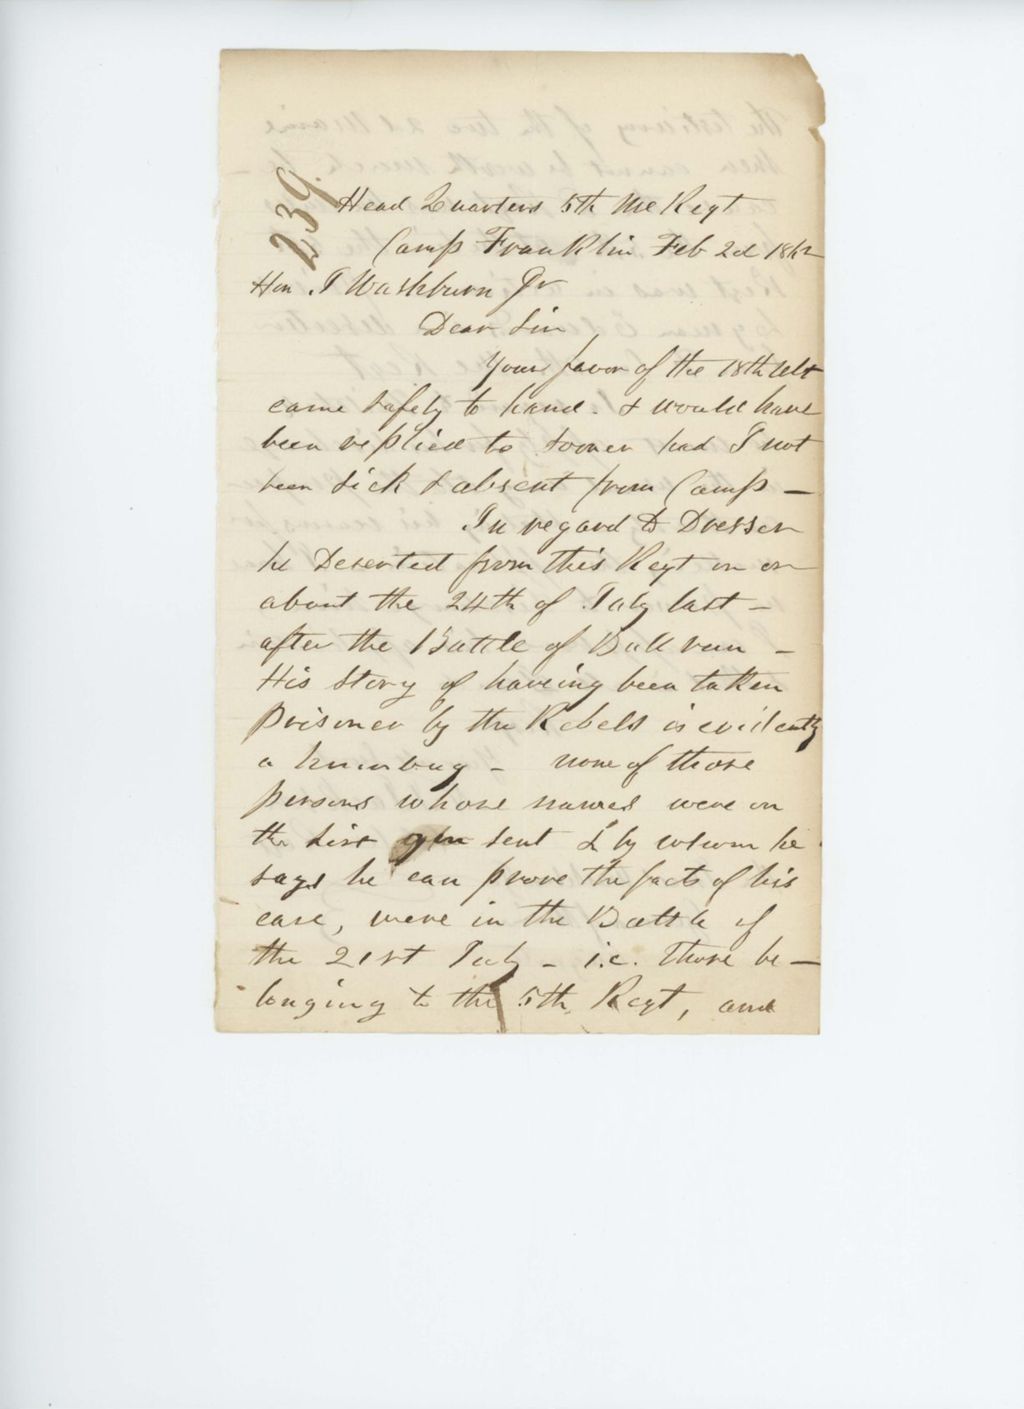 239.
Head Quarters 5th Me Regt
Camp Franklin Feb 2d 1862
Hon. I Washburn Jr
Dear Sir
Your favor of the 18th ult
came safely to hand. & would have
been replied to sooner had I not
been sick & absent from Camp —
In regard to Dresser
he Deserted from this Regt on or
about the 24th of July last —
after the Battle of Bull run —
His story of haveing been taken
prisoner by the Rebels is evidently
a humbug — none of those
persons whose names were on
the list you sent & by whom he
says he can prove the facts of his
case, were in the Battle of
the 21st July — i.e. those be—
longing to the 5th Regt, and